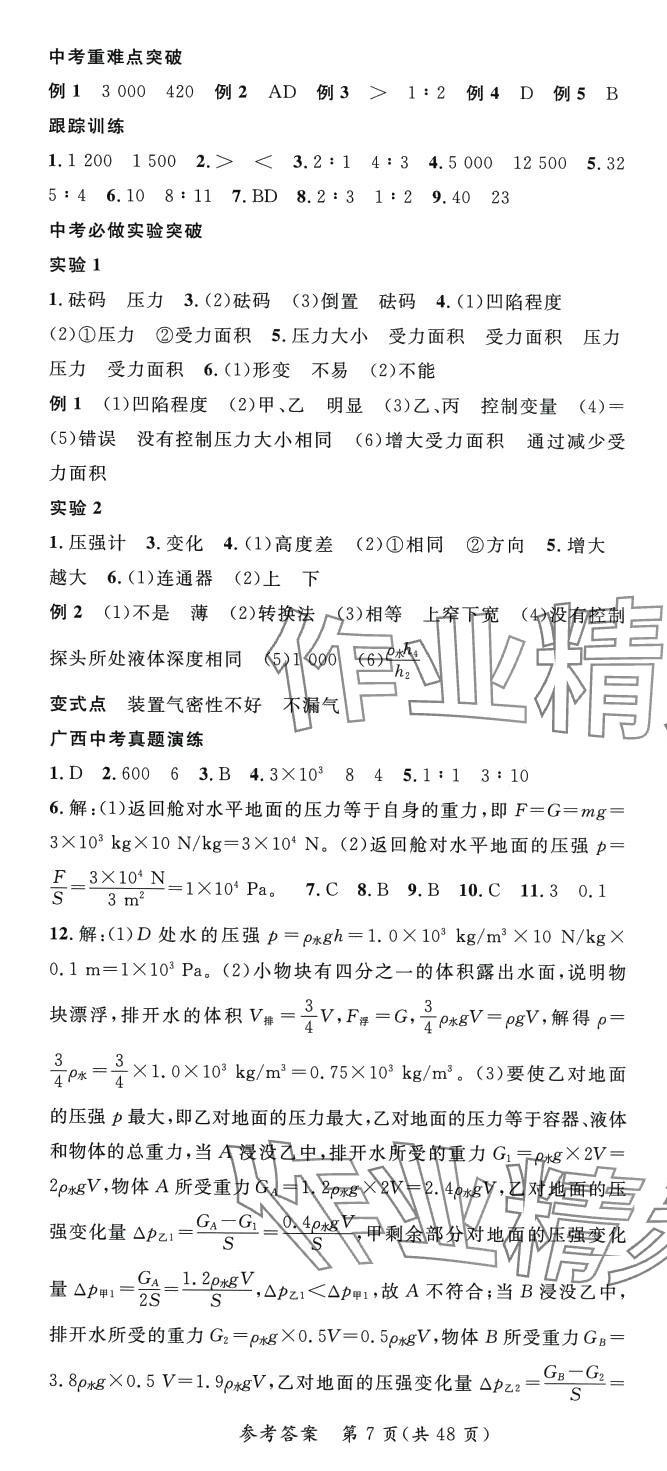 中考重难点突破
例1 3 000 420 例2 AD 例3 > 1∶2 例4 D 例5 B
跟踪训练
1.1 200 1 500 2.> < 3.2∶1 4∶3 4.5 000 12 500 5.32
5∶4 6.10 8∶11 7.BD 8.2∶3 1∶2 9.40 23
中考必做实验突破
实验1
1.砝码 压力 3.(2)砝码 (3)倒置 砝码 4.(1)凹陷程度
(2)①压力 ②受力面积 5.压力大小 受力面积 受力面积 压力
压力 受力面积 6.(1)形变 不易 (2)不能
例1 (1)凹陷程度 (2)甲、乙 明显 (3)乙、丙 控制变量 (4)=
(5)错误 没有控制压力大小相同 (6)增大受力面积 通过减少受
力面积
实验2
1.压强计 3.变化 4.(1)高度差 (2)①相同 ②方向 5.增大
越大 6.(1)连通器 (2)上 下
例2 (1)不是 薄 (2)转换法 (3)相等 上窄下宽 (4)没有控制
探头所处液体深度相同 (5)1 000 (6)ρ水h₄/h₂
变式点 装置气密性不好 不漏气
广西中考真题演练
1.D 2.600 6 3.B 4.3×10³ 8 4 5.1∶1 3∶10
6.解:(1)返回舱对水平地面的压力等于自身的重力,即F=G=mg=
3×10³ kg×10 N/kg=3×10⁴ N。(2)返回舱对水平地面的压强 p=
F/S=3×10⁴ N/3 m²=1×10⁴ Pa。 7.C 8.B 9.B 10.C 11.3 0.1
12.解:(1)D处水的压强 p=ρ水gh=1.0×10³ kg/m³×10 N/kg×
0.1 m=1×10³ Pa。(2)小物块有四分之一的体积露出水面,说明物
块漂浮,排开水的体积V排=3/4V,F浮=G,3/4ρ水gV=ρgV,解得ρ=
3/4ρ水=3/4×1.0×10³ kg/m³=0.75×10³ kg/m³。(3)要使乙对地面
的压强p最大,即乙对地面的压力最大,乙对地面的压力等于容器、液体
和物体的总重力,当A浸没乙中,排开水所受的重力G₁=ρ水g×2V=
2ρ水gV,物体A所受重力G_A=1.2ρ水g×2V=2.4ρ水gV,乙对地面的压
强变化量 Δp乙1=(G_A-G₁)/S=0.4ρ水gV/S,甲剩余部分对地面的压强变化
量 Δp甲1=G_A/2S=1.2ρ水gV/S,Δp乙1<Δp甲1,故A不符合;当B浸没乙中,
排开水所受的重力G₂=ρ水g×0.5V=0.5ρ水gV,物体B所受重力G_B=
3.8ρ水g×0.5 V=1.9ρ水gV,乙对地面的压强变化量 Δp乙2=(G_B-G₂)/S=
参考答案 第7页(共48页)
作业精
作业精